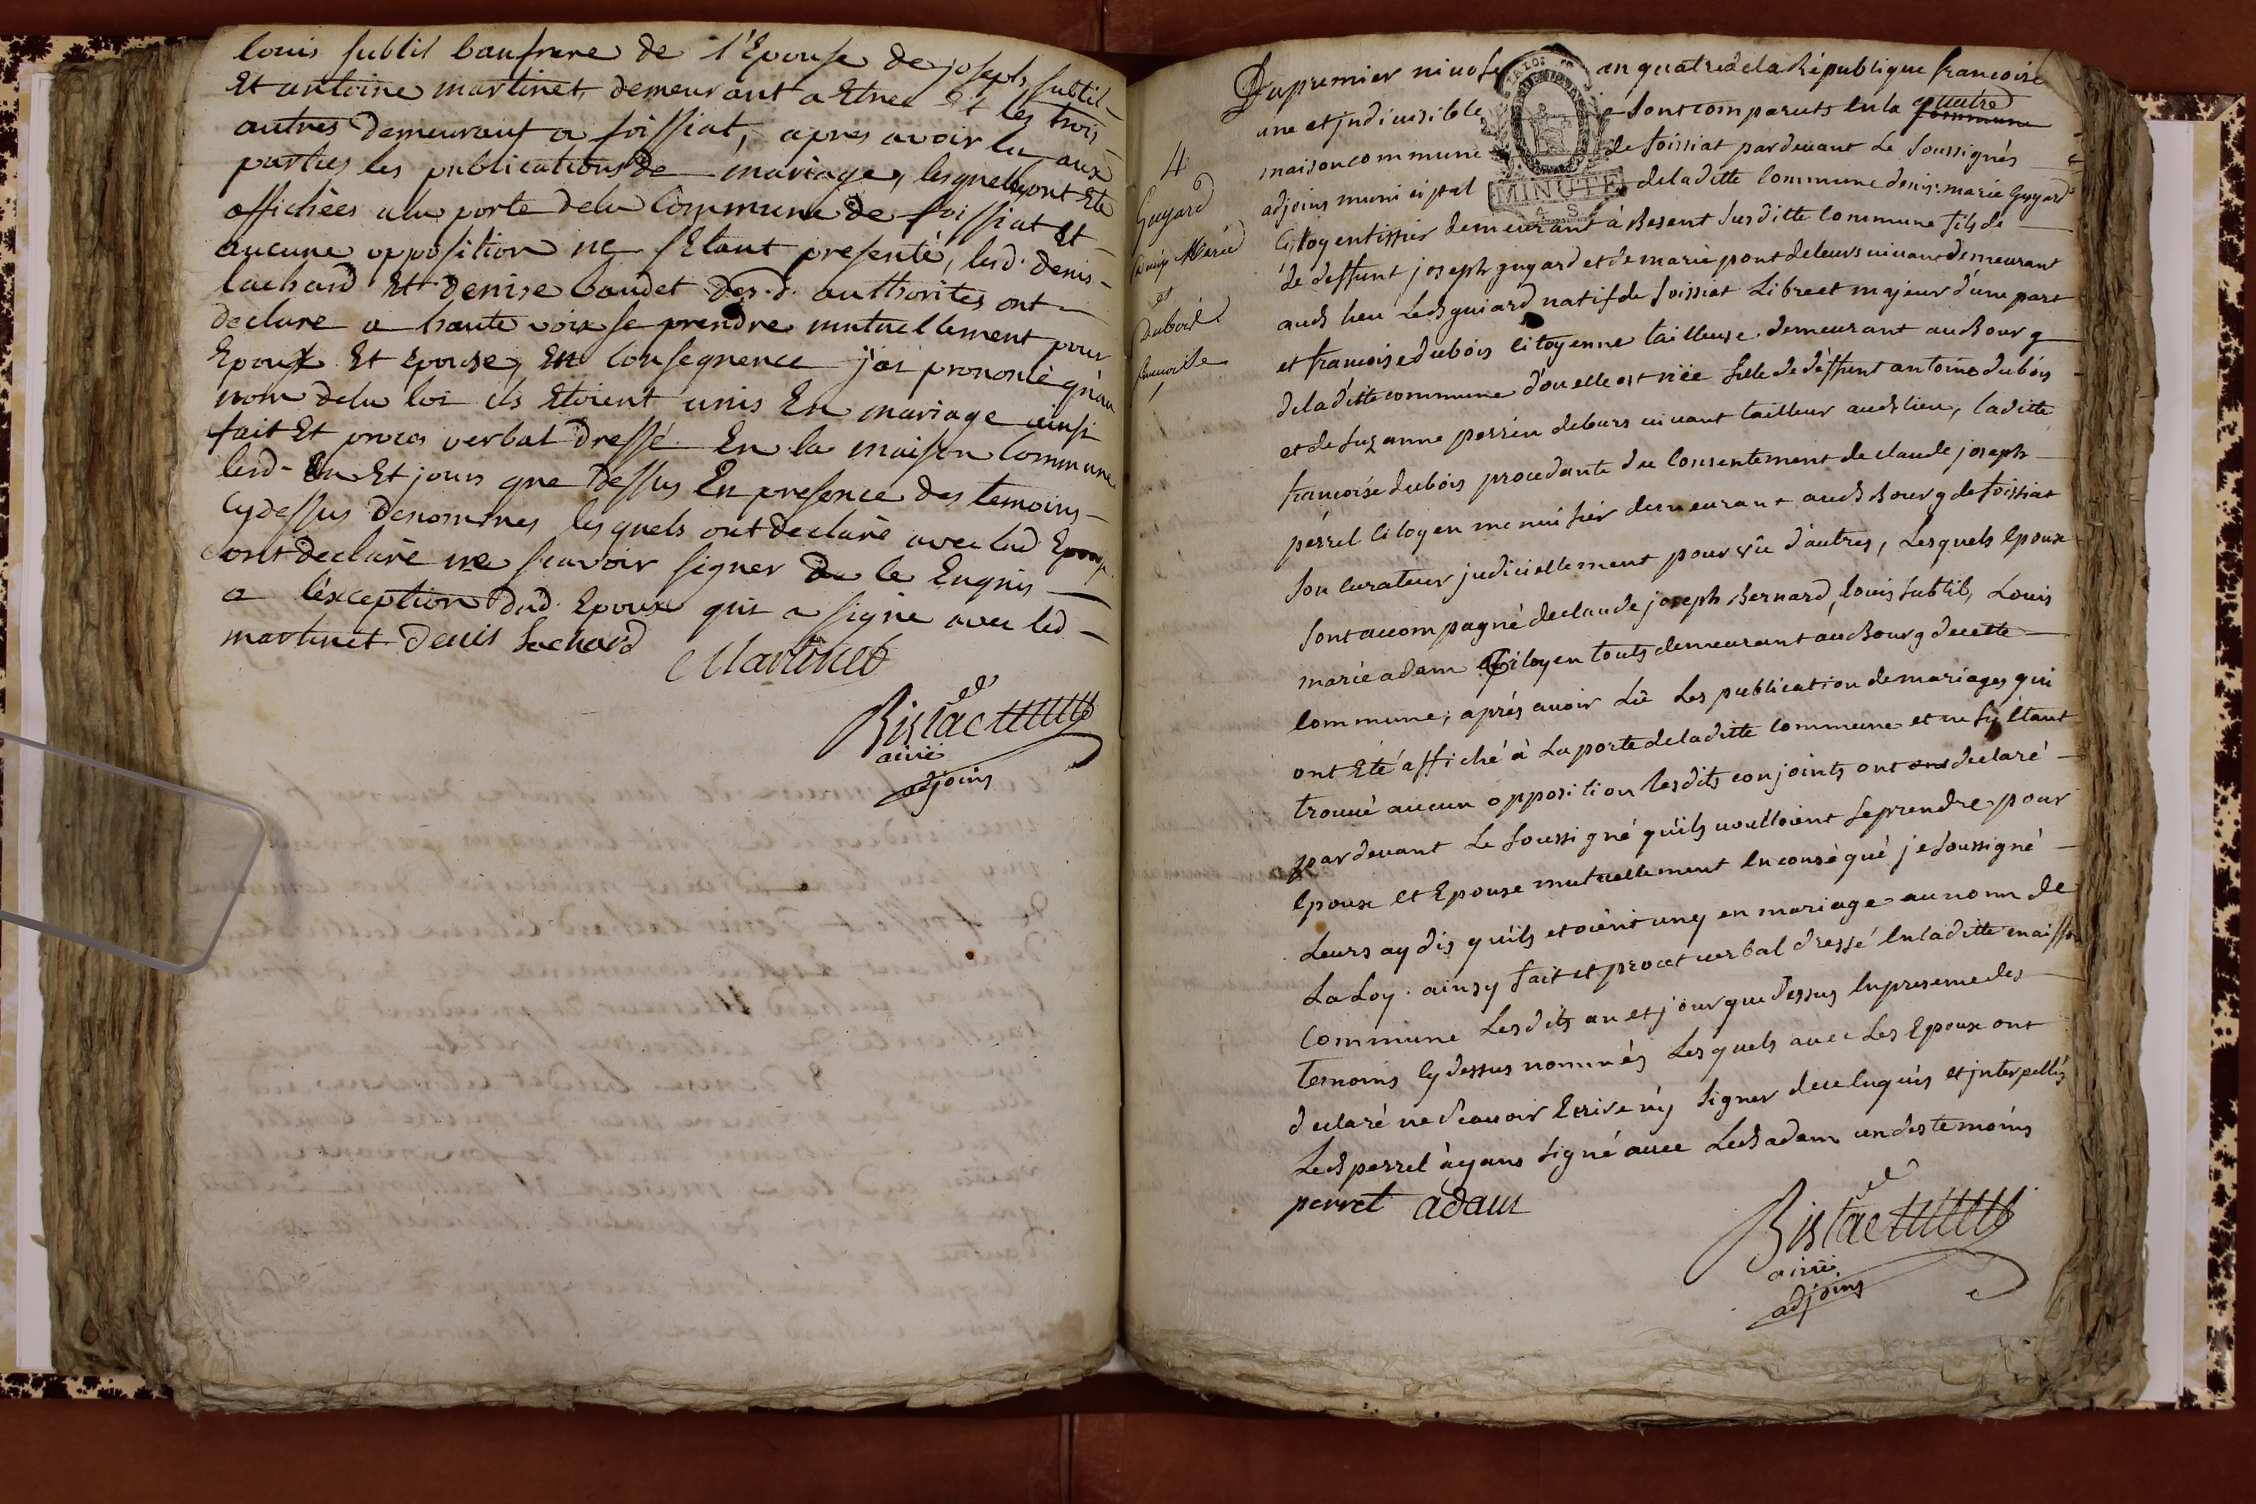 louis subtil baufrere de l'Epouse de joseph subtil
Et antoine martinet demeurant a Etrez Et les trois
autres demeurant a foissiat, apres avoir lu aux
parties les publications de mariage, lesquelles ont Eté
affichées a la porte de la Commune de foissiat Et
aucune opposition ne s'Etant presenté, lesd. denis
lachard Et denise baudet des.d. authorités ont
declare a haute voix se prendre mutuellement pour
Epoux Et Epouse, En Consequence j'ai prononcé qu'au
nom de la loi ils Etoient unis En mariage ainsi
fait Et proces verbal Dressé En la maison Commune
lesd. An Et jours que Dessus En presence des temoins
Cydessus denommes lesquels ont declaré avec lad Epouse
ont declaré ne scavoir signer de ce Enquis
a l'exception dud. Epoux qui a signé avec led
martinet Denis Lachard
Martinet
Bistac
ainé
adjoint
Du premier nivose an quatre de la République francoise
une et jndivisible sont comparuts en la quatre
commune
maison commune de foissiat pardevant Le soussignés
adjoins municipal de laditte Commune denis-marie Guyard
Citoyen tissier demeurant à Besent susditte Commune fils de
de deffunt joseph guyard et de marie pont de leurs vivant demeurant
aud lieu Led guiard natif de foissiat Libre et majeur d'une part
et francoise dubois Citoyenne tailleuse demeurant au Bourg
de laditte commune d'ou elle est née fille de déffunt antoine dubois
et de suzanne perrin de leurs vivant tailleur aud lieu, laditte
francoise dubois procedante du Consentement de claude joseph
perrel Citoyen menuisier demeurant aud Bourg de foissiat
son curateur judiciellement pourvû d'autres, Lesquels Epoux
sont accompagné de claude joseph Bernard, louis subtil, Louis
marie adam Citoyen touts demeurant au Bourg de cette
Commune; aprés avoir Lû Les publication de mariages qui
ont Eté affiché à La porte de laditte Commune et ne s'y Etant
trouvé aucun opposition lesdits conjoints ont declaré
pardevant Le soussigné qu'ils voulloient se prendre pour
Epoux et Epouse mutuellement En conséqué je soussigné
Leurs ay dis qu'ils etoient uny en mariage au nom de
La Loy. ainsy fait et procet verbal dressé En laditte maisson
Commune Lesdits an et jour que dessus En presence des
temoins Cydessus nommés Lesquels avec Les Epoux ont
declaré ne scavoir Ecrire ny signer de ce Enquis et jnterpellés
Led perrel ayans signé avec Led adam un des temoins
perret adam
Bistac
ainé
adjoins
4
Guyard
Denis Marie
et
Dubois
MINUTE